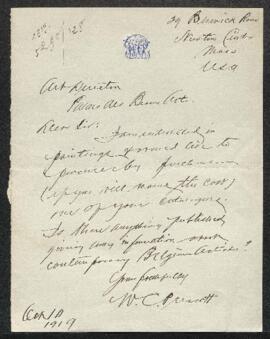 29 Berwick Road
Newton Centre
Mass
USA
Art Director
Palais des Beaux Art.
Dear Sir:
I am interested in
paintings & would like to
procure by purchase
(if you will name the cost)
one of your catalogues.
Is there anything published
giving any information about
contemporary Belgian Artists?
Yours Gratefully
W. C. Prescott
Oct 10
1919